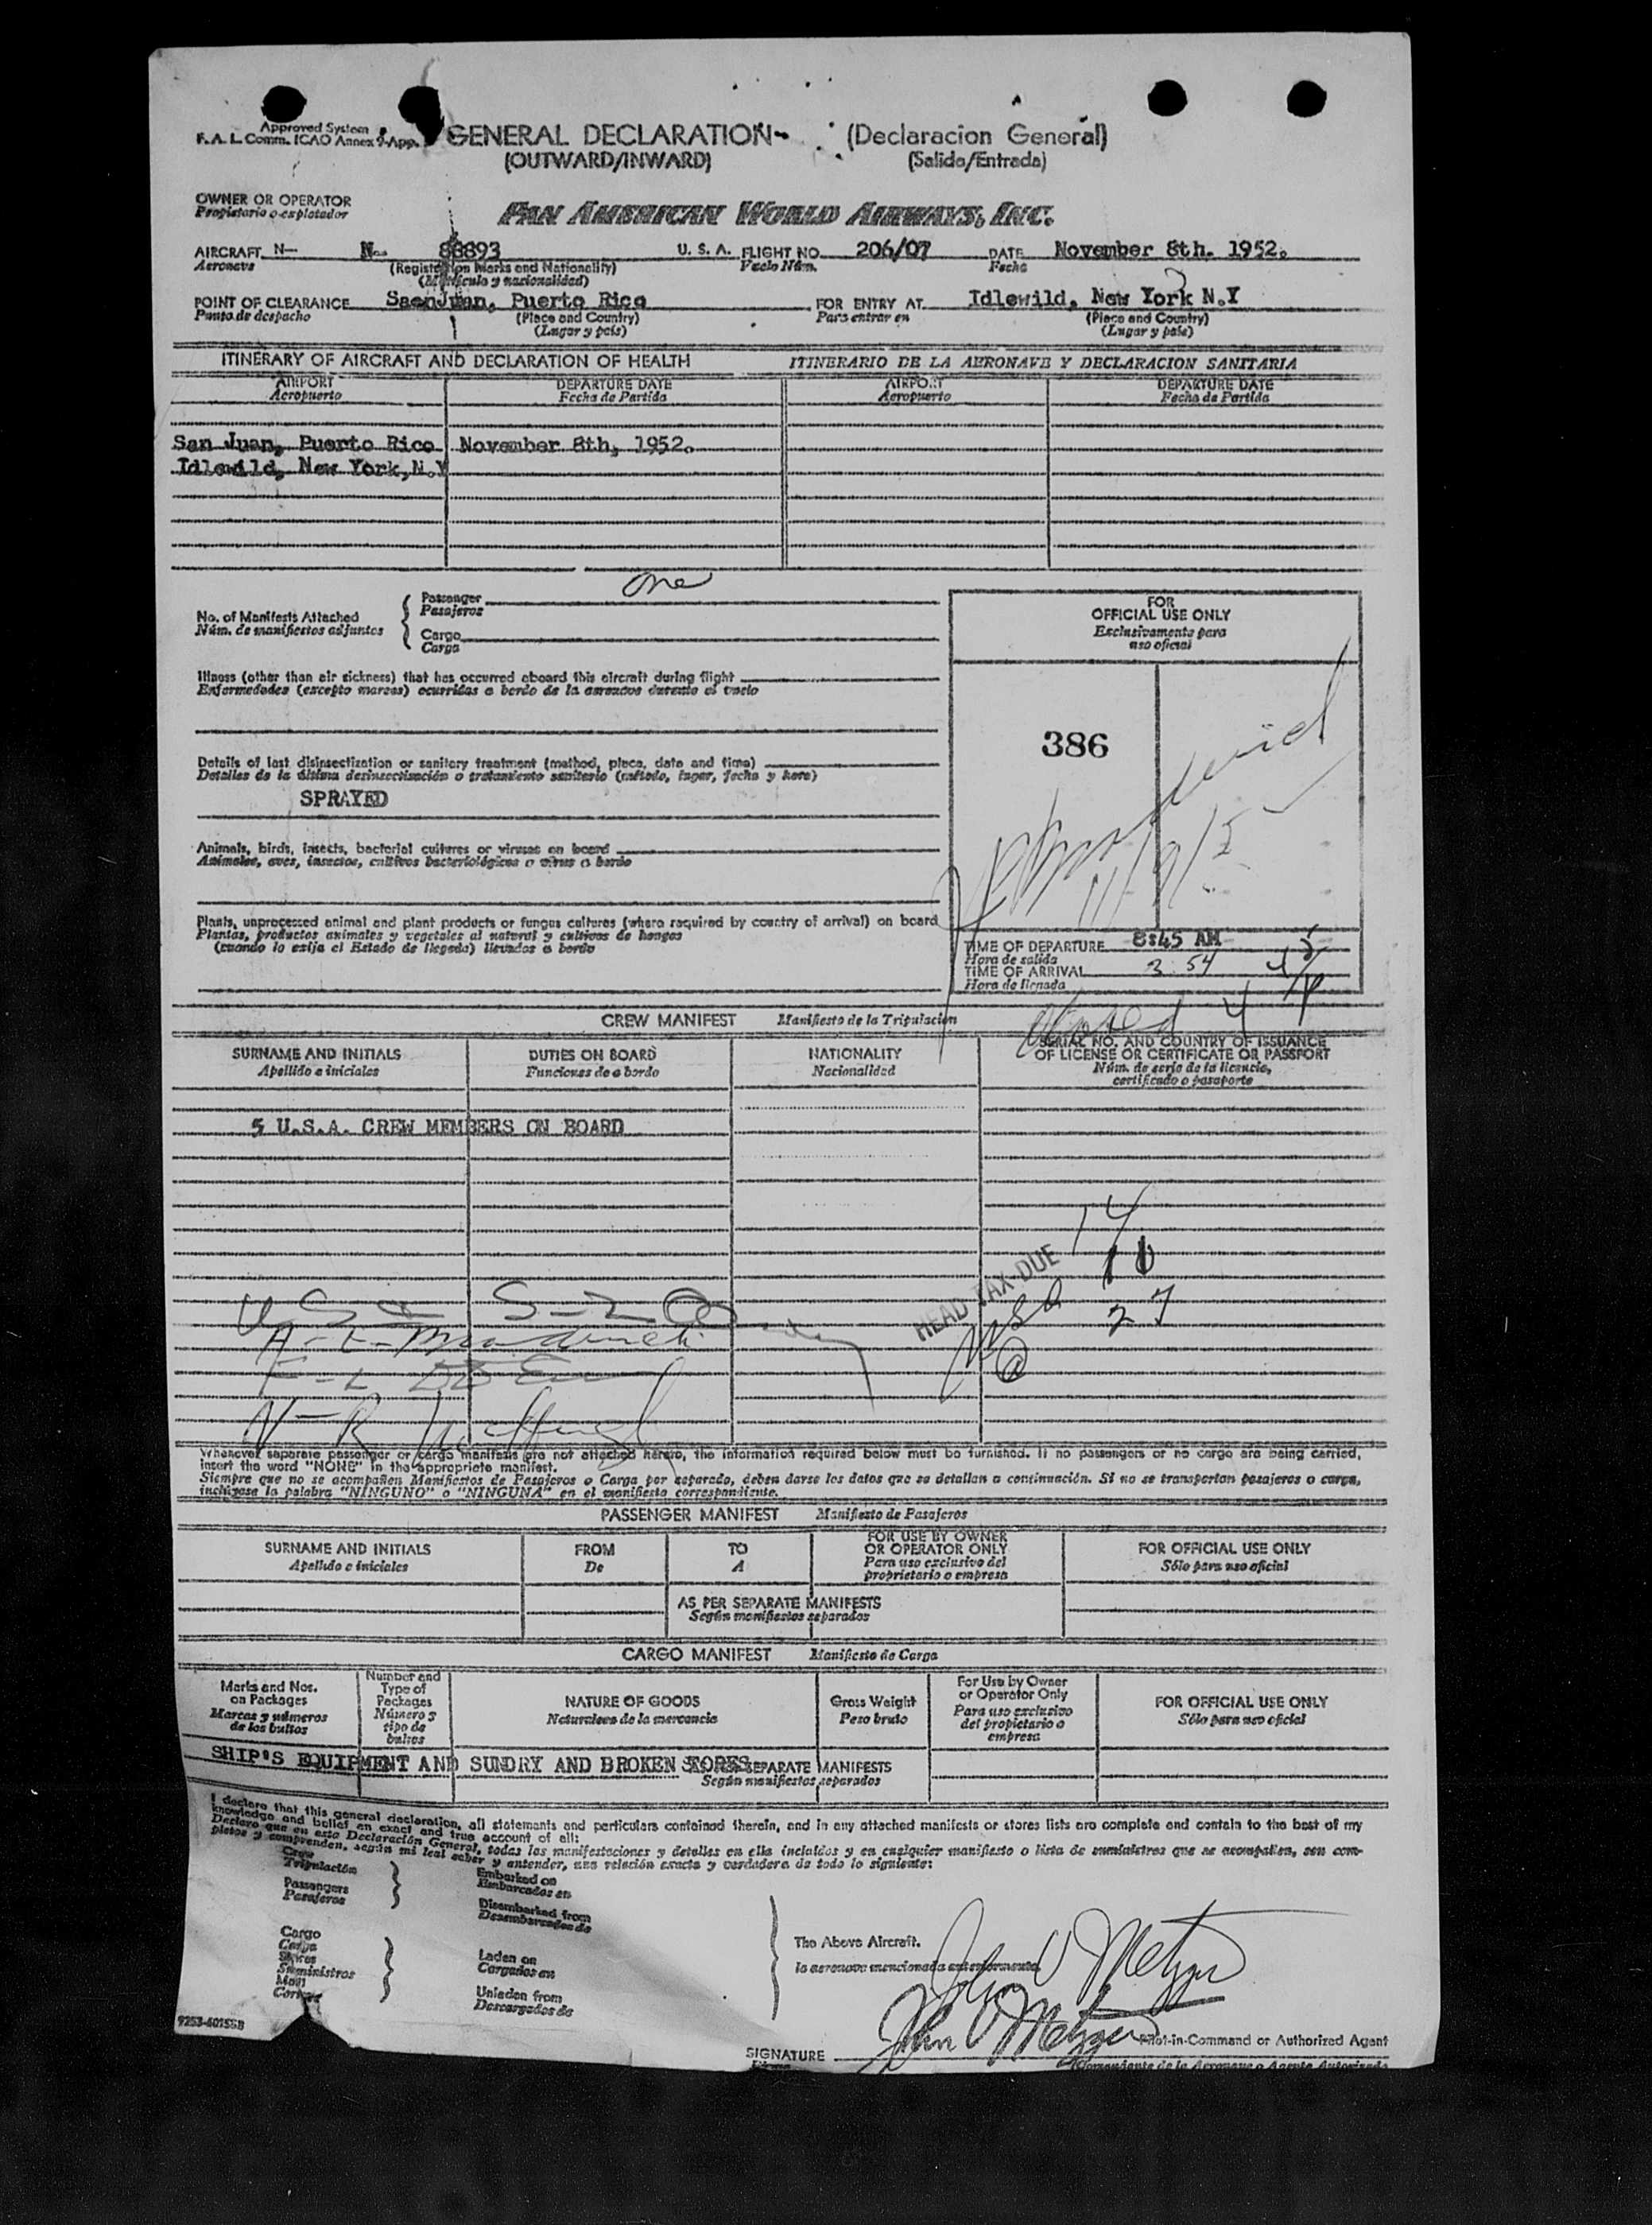 Approved System
F.A.L. Comm. ICAO Annex 9-App.
GENERAL DECLARATION (Declaracion General)
(OUTWARD/INWARD) (Salida/Entrada)
OWNER OR OPERATOR
Propietario o explotador
PAN AMERICAN WORLD AIRWAYS, INC.
AIRCRAFT N- N- 88893 U. S. A. FLIGHT NO. 206/07 DATE November 8th. 1952.
Aeronave (Registration Marks and Nationality) Vuelo Núm. Fecha
(Matrícula y nacionalidad)
POINT OF CLEARANCE SaenJuan, Puerto Rico FOR ENTRY AT Idlewild, New York N.Y
Punto de despacho (Place and Country) Para entrar en (Place and Country)
(Lugar y país) (Lugar y país)
ITINERARY OF AIRCRAFT AND DECLARATION OF HEALTH ITINERARIO DE LA AERONAVE Y DECLARACION SANITARIA
AIRPORT DEPARTURE DATE AIRPORT DEPARTURE DATE
Aeropuerto Fecha de Partida Aeropuerto Fecha de Partida
San Juan, Puerto Rico November 8th, 1952.
Idlewild, New York, N.Y
one
No. of Manifests Attached
Núm. de manifiestos adjuntos
Passenger
Pasajeros
Cargo
Carga
FOR
OFFICIAL USE ONLY
Exclusivamente para
uso oficial
Illness (other than air sickness) that has occurred aboard this aircraft during flight
Enfermedades (excepto mareos) ocurridas a bordo de la aeronave durante el vuelo
386
Details of last disinsectization or sanitary treatment (method, place, date and time)
Detalles de la última desinsectización o tratamiento sanitario (método, lugar, fecha y hora)
SPRAYED
Animals, birds, insects, bacterial cultures or viruses on board
Animales, aves, insectos, cultivos bacteriológicos o virus a bordo
Plants, unprocessed animal and plant products or fungus cultures (where required by country of arrival) on board
Plantas, productos animales y vegetales al natural y cultivos de hongos
(cuando lo exija el Estado de llegada) llevados a bordo
TIME OF DEPARTURE 8:45 AM
Hora de salida
TIME OF ARRIVAL 3 54
Hora de llegada
CREW MANIFEST Manifiesto de la Tripulacion
SURNAME AND INITIALS DUTIES ON BOARD NATIONALITY SERIAL NO. AND COUNTRY OF ISSUANCE
OF LICENSE OR CERTIFICATE OR PASSPORT
Apellido e iniciales Funciones de a bordo Nacionalidad Núm. de serie de la licencia,
certificado o pasaporte
5 U.S.A. CREW MEMBERS ON BOARD
14
HEAD TAX DUE
27
Whenever separate passenger or cargo manifests are not attached hereto, the information required below must be furnished. If no passengers or no cargo are being carried,
insert the word "NONE" in the appropriate manifest.
Siempre que no se acompañen Manifiestos de Pasajeros o Carga por separado, deben darse los datos que se detallan a continuación. Si no se transportan pasajeros o carga,
inclúyase la palabra "NINGUNO" o "NINGUNA" en el manifiesto correspondiente.
PASSENGER MANIFEST Manifiesto de Pasajeros
SURNAME AND INITIALS FROM TO FOR USE BY OWNER
OR OPERATOR ONLY FOR OFFICIAL USE ONLY
Apellido e iniciales De A Para uso exclusivo del
propietario o empresa Sólo para uso oficial
AS PER SEPARATE MANIFESTS
Según manifiestos separados
CARGO MANIFEST Manifiesto de Carga
Marks and Nos.
on Packages
Marcas y números
de los bultos
Number and
Type of
Packages
Número y
tipo de
bultos
NATURE OF GOODS
Naturaleza de la mercancía
Gross Weight
Peso bruto
For Use by Owner
or Operator Only
Para uso exclusivo
del propietario o
empresa
FOR OFFICIAL USE ONLY
Sólo para uso oficial
SHIP'S EQUIPMENT AND SUNDRY AND BROKEN STORES SEPARATE MANIFESTS
Según manifiestos separados
I declare that this general declaration, all statements and particulars contained therein, and in any attached manifests or stores lists are complete and contain to the best of my
knowledge and belief an exact and true account of all:
Declaro que en esta Declaración General, todas las manifestaciones y detalles en ella incluídos y en cualquier manifiesto o lista de suministros que se acompañen, son com-
pletos y comprenden, según mi leal saber y entender, una relación exacta y verdadera de todo lo siguiente:
Crew
Tripulación
Passengers
Pasajeros
Embarked on
Embarcados en
Disembarked from
Desembarcados de
Cargo
Carga
Stores
Suministros
Mail
Correo
Laden on
Cargados en
Unladen from
Descargados de
The Above Aircraft.
la aeronave mencionada anteriormente.
John V Metzger
John V Metzger
9253-40155B
Pilot-in-Command or Authorized Agent
SIGNATURE
Comandante de la Aeronave o Agente Autorizado